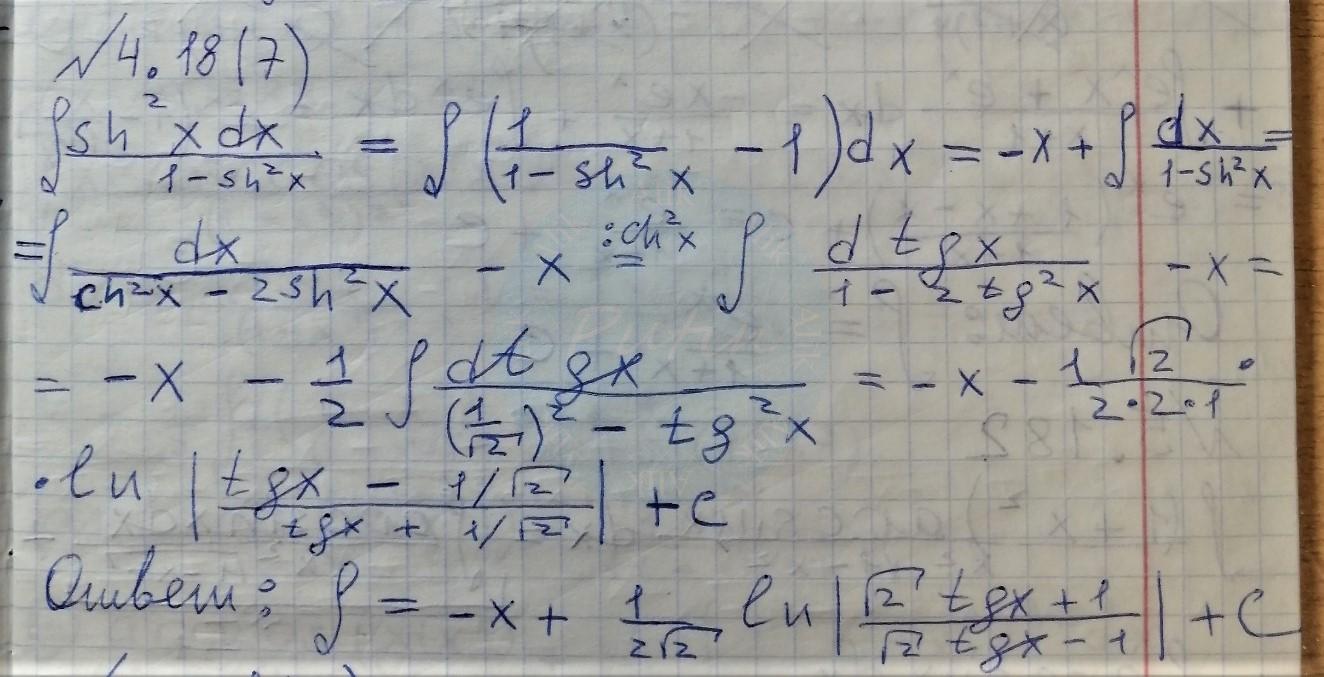 √ 4.18(7)
∫ sh²x dx / (1 - sh²x) = ∫ (1 / (1 - sh²x) - 1) dx = -x + ∫ dx / (1 - sh²x) =
= ∫ dx / (ch²x - 2sh²x) - x =^{:ch²x} ∫ d tgx / (1 - 2tg²x) - x =
= -x - 1/2 ∫ d tgx / ((1/√2)² - tg²x) = -x - 1√2 / (2·2·1) ·
· ln | (tgx - 1/√2) / (tgx + 1/√2) | + C
Ответ: ∫ = -x + 1/(2√2) ln | (√2 tgx + 1) / (√2 tgx - 1) | + C